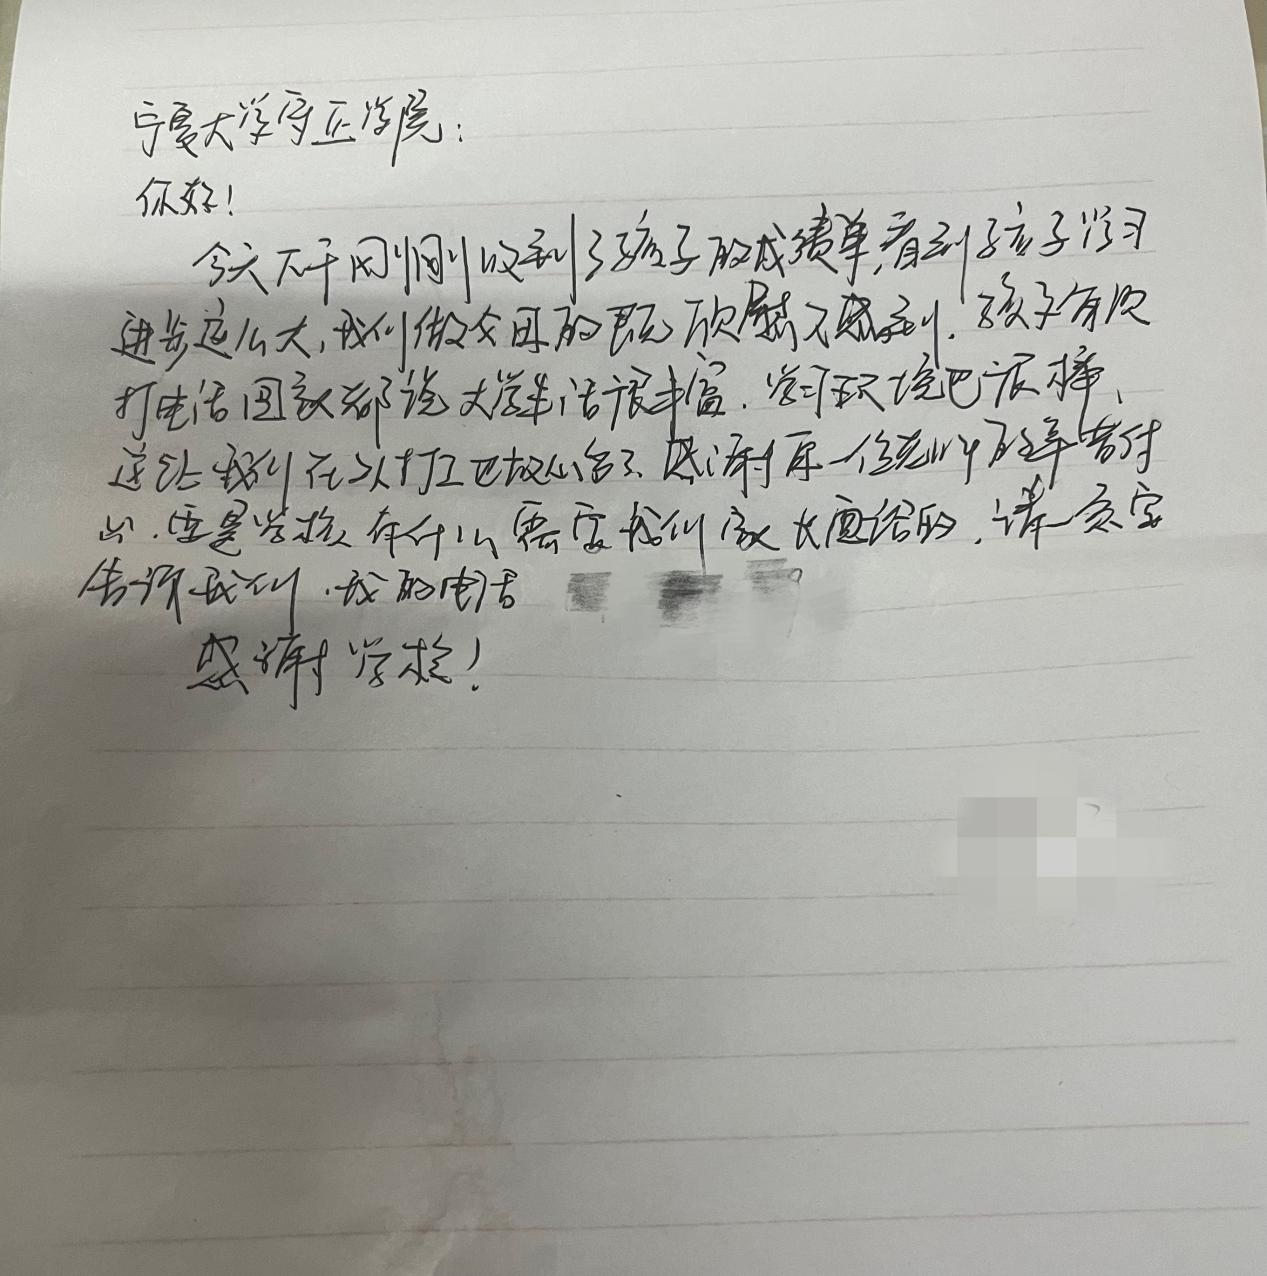 宁夏大学守正学院：
你好！
今天下午刚刚收到了孩子的成绩单，看到孩子学习
进步这么大，我们做父母的既欣慰又感到．孩子每次
打电话回家都说大学生活很丰富．学习环境也很棒，
这让我们在外打工也放心多了．感谢每一位老师的辛苦付
出．要是学校有什么需要我们家长配合的，请一定
告诉我们．我的电话
感谢学校！